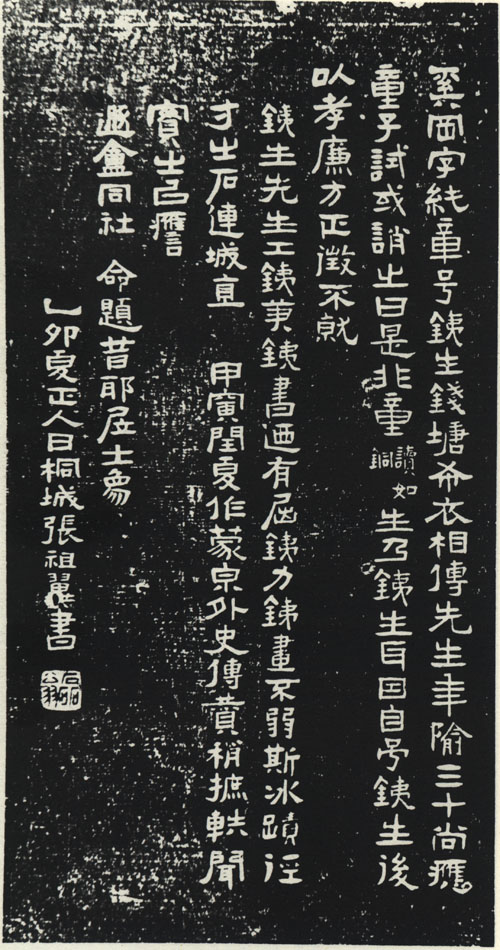 奚岡字純章号銕生錢塘布衣相傳先生年隃三十尚應
童子試或誚之曰是非童讀如銅生乃銕生耳因自号銕生後
以孝廉方正徵不就
銕生先生工銕筆銕書迺有屈銕力銕畫不弱斯冰蹟径
寸之石連城直 甲寅閏夏作蒙泉外史傳贊稍摭軼聞
實之㠯譍
遯盦同社 命題昔耶居士
乙卯夏正人日桐城張祖翼書